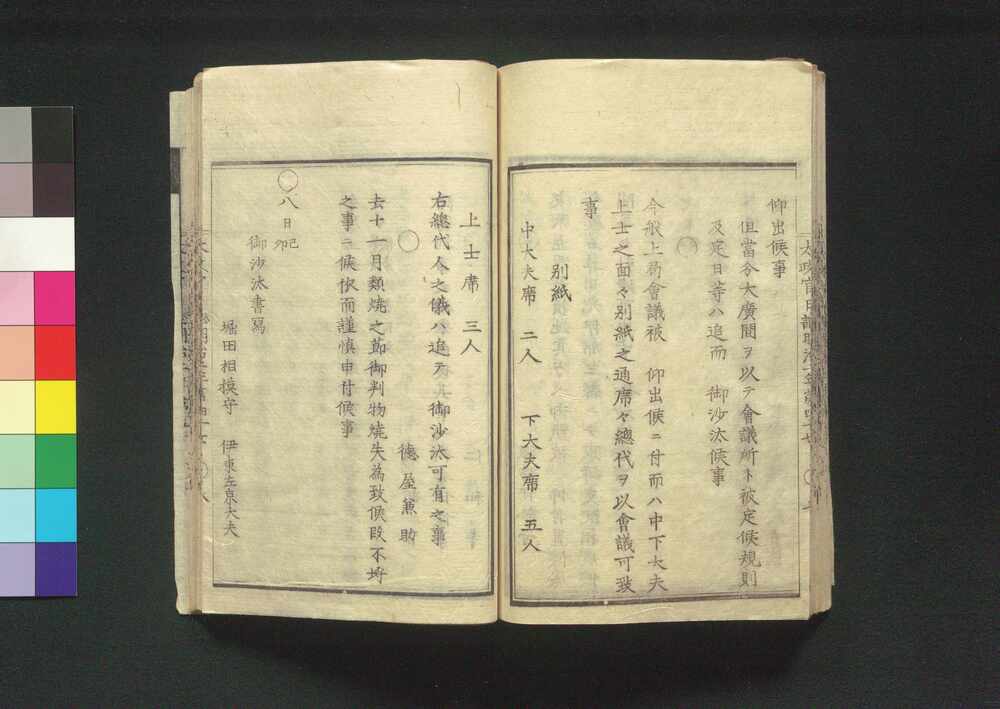 仰出候事
但當分大廣間ヲ以テ會議所ト被定候規則
及定日等ハ追而　御沙汰候事
○
今般上局會議被　仰出候ニ付而ハ中下大夫
上士之面々別紙之通席々總代ヲ以會議可致
事
別紙
中大夫席　二人　下大夫席　五人
上士席　三人
右總代人之儀ハ追テ御沙汰可有之事
○　德屋兼助
去十一月類燒之節御判物燒失為致候段不埒
之事ニ候依而謹慎申付候事
○八日
御沙汰書寫
堀田相摸守　伊東左京大夫